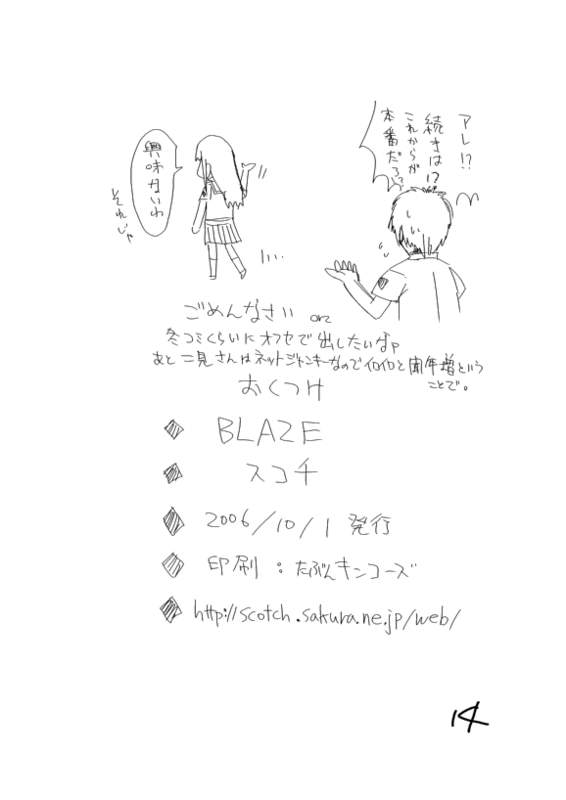 アレ!?
続きは!?
これからが
本番だろ!?
興味ないわ
それじゃ
ごめんなさい orz
冬コミくらいにオフセで出したいなァ
あと二見さんはネットジャンキーなのでイロイロと周年増という
ことで。
おくつけ
BLAZE
スコチ
2006/10/1 発行
印刷:たぶんキンコーズ
http://scotch.sakura.ne.jp/web/
14